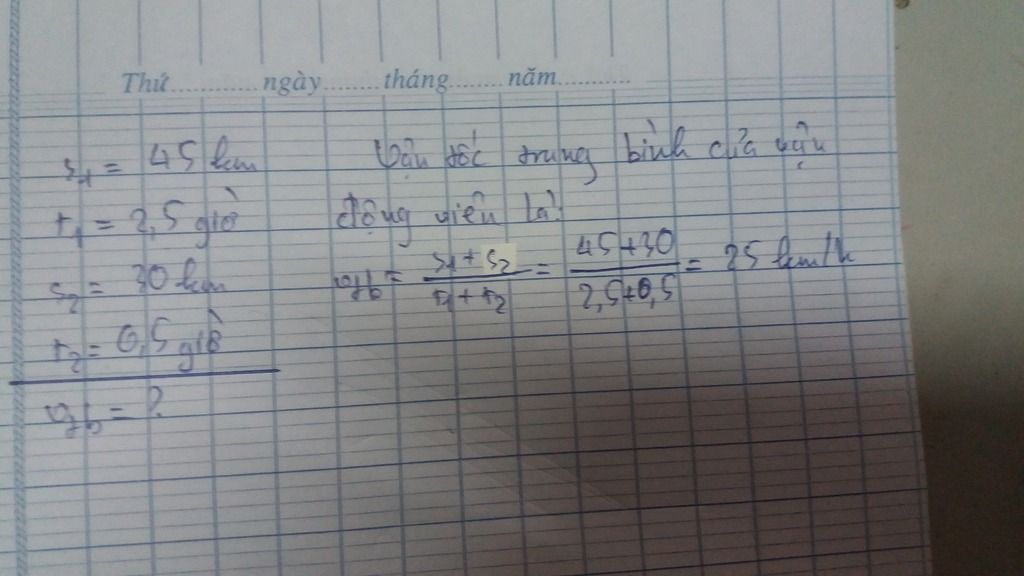 Thứ.............ngày........tháng........năm............
s1 = 45 km
t1 = 2,5 giờ
s2 = 30 km
t2 = 0,5 giờ
vtb = ?
Vận tốc trung bình của vận
động viên là:
vtb = s1 + s2 / t1 + t2 = 45+30 / 2,5+0,5 = 25 km/h